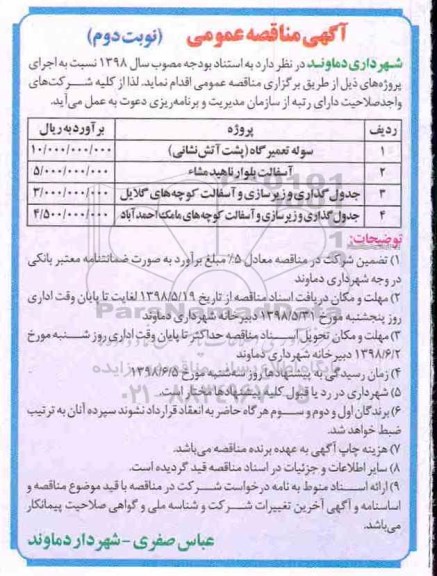 آگهی مناقصه عمومی (نوبت دوم)
شهرداری دماوند در نظر دارد به استناد بودجه مصوب سال ۱۳۹۸ نسبت به اجرای
پروژه‌های ذیل از طریق برگزاری مناقصه عمومی اقدام نماید. لذا از کلیه شرکت‌های
واجدصلاحیت دارای رتبه از سازمان مدیریت و برنامه‌ریزی دعوت به عمل می‌آید.
ردیف پروژه برآورد به ریال
۱ سوله تعمیرگاه (پشت آتش نشانی) ۱۰/۰۰۰/۰۰۰/۰۰۰
۲ آسفالت بلوار ناهید مشاء ۵/۰۰۰/۰۰۰/۰۰۰
۳ جدول گذاری و زیرسازی و آسفالت کوچه‌های گلایل ۳/۰۰۰/۰۰۰/۰۰۰
۴ جدول گذاری و زیرسازی و آسفالت کوچه‌های مامک احمدآباد ۴/۵۰۰/۰۰۰/۰۰۰
توضیحات:
۱) تضمین شرکت در مناقصه معادل ۵٪ مبلغ برآورد به صورت ضمانتنامه معتبر بانکی
در وجه شهرداری دماوند
۲) مهلت و مکان دریافت اسناد مناقصه از تاریخ ۱۳۹۸/۵/۱۹ لغایت تا پایان وقت اداری
روز پنجشنبه مورخ ۱۳۹۸/۵/۳۱ دبیرخانه شهرداری دماوند
۳) مهلت و مکان تحویل اسناد مناقصه حداکثر تا پایان وقت اداری روز شنبه مورخ
۱۳۹۸/۶/۲ دبیرخانه شهرداری دماوند
۴) زمان رسیدگی به پیشنهادها روز سه‌شنبه مورخ ۱۳۹۸/۶/۵
۵) شهرداری در رد یا قبول کلیه پیشنهادها مختار است.
۶) برندگان اول و دوم و سوم هرگاه حاضر به انعقاد قرارداد نشوند سپرده آنان به ترتیب
ضبط خواهد شد.
۷) هزینه چاپ آگهی به عهده برنده مناقصه می‌باشد.
۸) سایر اطلاعات و جزئیات در اسناد مناقصه قید گردیده است.
۹) ارائه اسناد منوط به نامه درخواست شرکت در مناقصه با قید موضوع مناقصه و
اساسنامه و آگهی آخرین تغییرات شرکت و شناسه ملی و گواهی صلاحیت پیمانکار
می‌باشد.
عباس صفری - شهردار دماوند